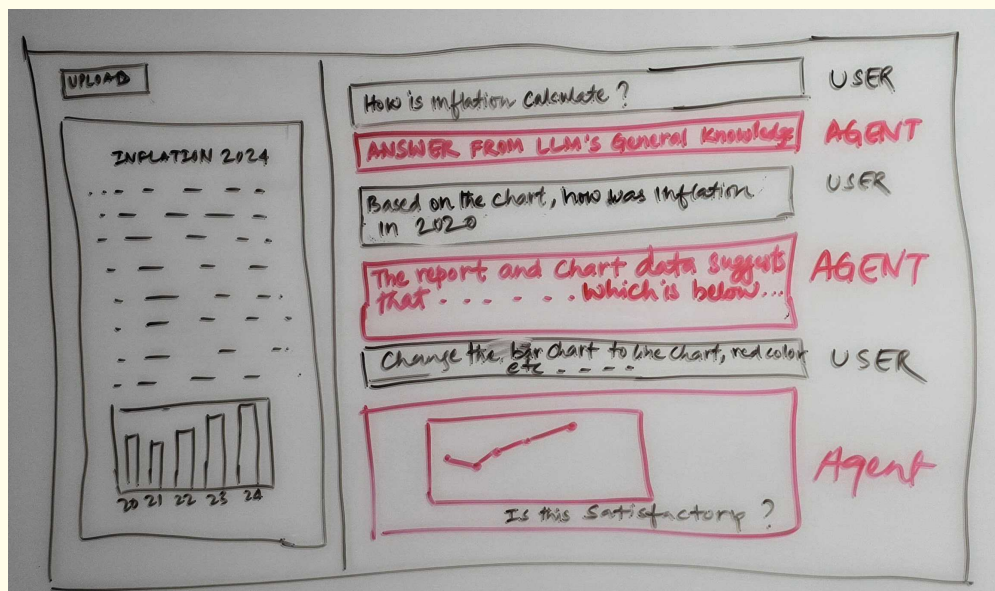 UPLOAD
INFLATION 2024
20 21 22 23 24
How is inflation Calculate ?
USER
ANSWER FROM LLM'S General Knowledge
AGENT
Based on the Chart, how was Inflation
in 2020
USER
The report and Chart data suggests
that - - - - - . which is below...
AGENT
Change the bar chart to line chart, red color
etc - - - -
USER
Is this Satisfactory ?
Agent